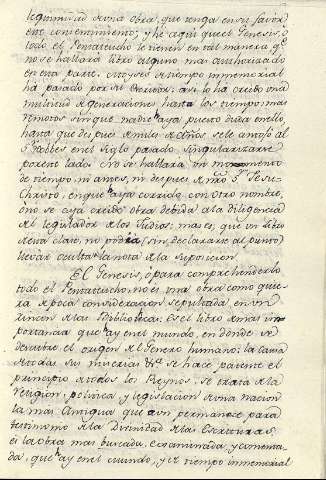 legitimidad de una obra, que tenga en su favor
este consentimiento; y he aqui que el Genesis, o
todo el Pentateucho le tienen en tal manera q.e
no se hallará libro alguno mas authorizado
en esta parte. Moyses de tiempo inmemorial
ha pasado por su Escritor: asi lo ha creido una
multitud de generaciones hasta los tiempos mas
remotos sin que nadie haya puesto duda en ello,
hasta que despues de mil años se le antojó al
S.r en el siglo pasado singularizarse
por este lado. No se hallará un momento
de tiempo, ni antes, ni despues de N.ro S.r Jesu-
Christo, en que haya corrido con otro nombre,
o no se haya creido obra debida a la diligencia
del legislador de los Judios; mas es, que un libro
de esta clase, no podria (sin declararse al punto)
llevar oculta la nota de la suposicion.
El Genesis, o para comprehenderlo
todo el Pentateucho, no es una obra como quie-
ra de poca consideracion sepultada en un
rincon de las Bibliothecas. Es el libro de mas im
portancia que hay en el mundo, en donde se
descubre el origen del Genero humano: la causa
de todas sus miserias &.a se hace patente el
principio de todos los Reynos. Se trata de la
religion, politica y legislacion de una nacion
la mas antigua que aun permanece para
testimonio de la Divinidad de las Escrituras:
es la obra mas buscada, examinada, y comenta-
da, que hay en el mundo, y de tiempo inmemorial